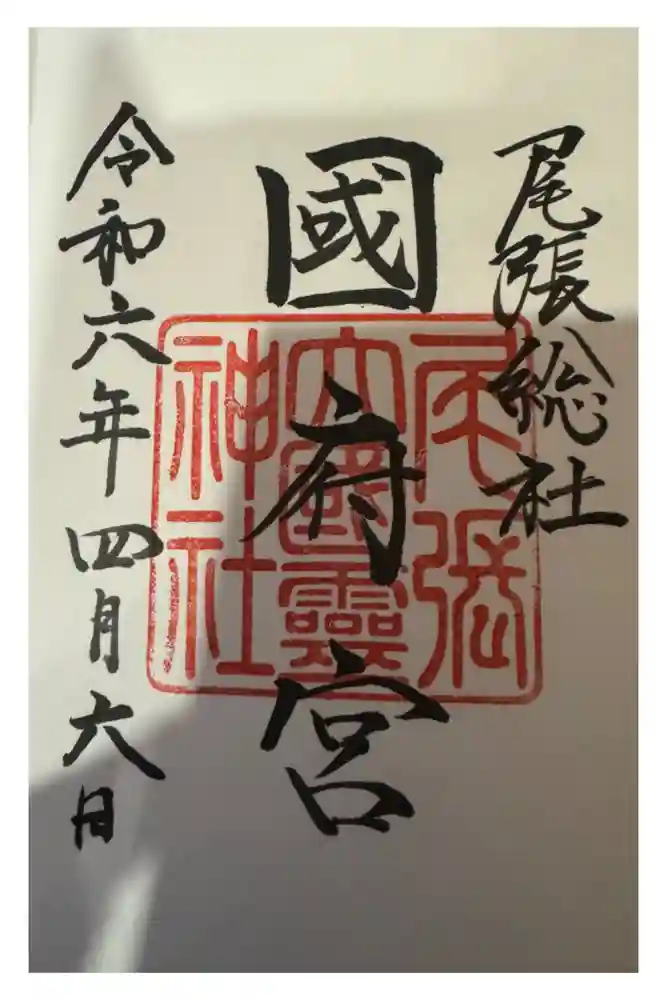 尾張総社
國府宮
令和六年四月六日
尾張
大國靈
神社